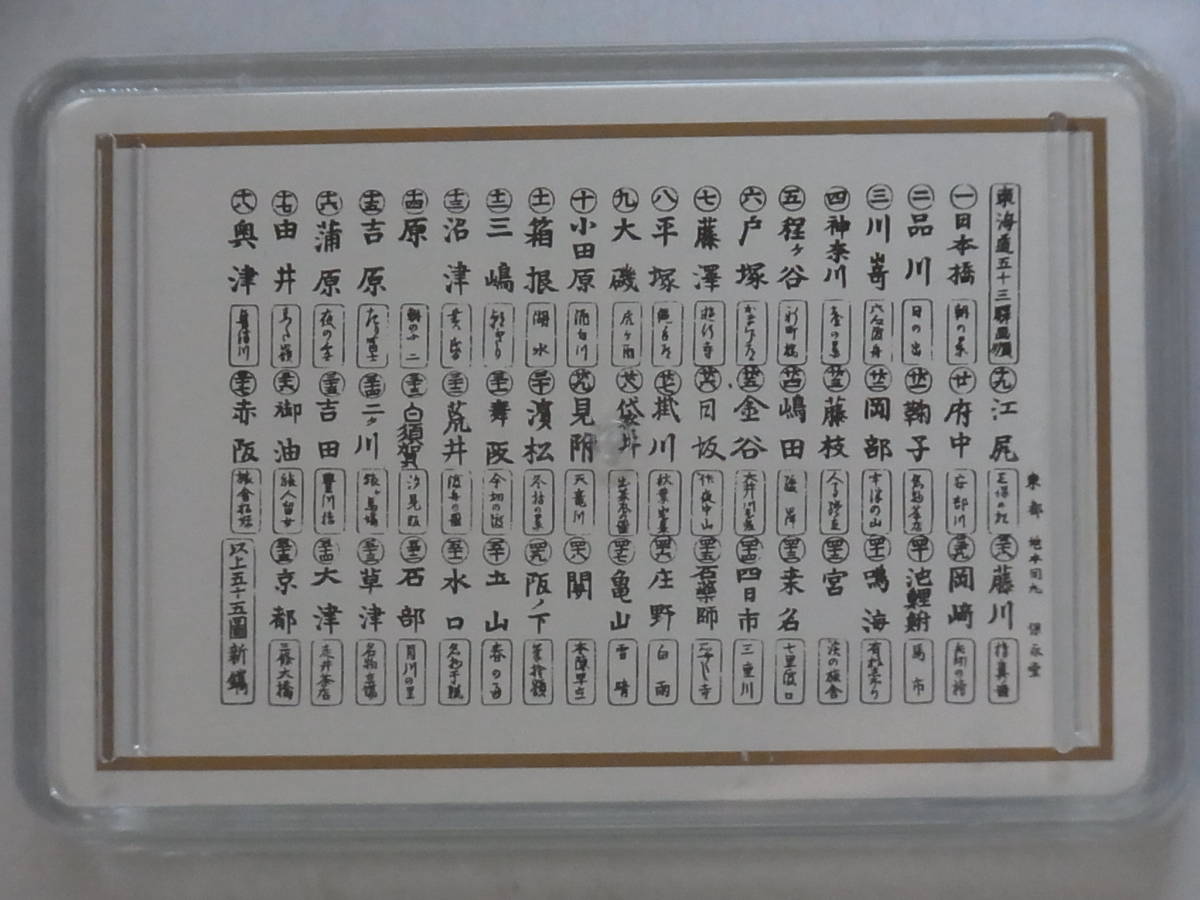 東海道五十三驛
一 日本橋 朝の景
二 品川 日の出
三 川嵜 六郷渡舟
四 神奈川 臺の景
五 程ヶ谷 新町橋
六 戸塚
七 藤澤 遊行寺
八 平塚 縄手道
九 大磯 虎ヶ雨
十 小田原 酒匂川
十一 箱根 湖水
十二 三嶋 朝きり
十三 沼津 黄昏
十四 原 朝の不二
十五 吉原 左り富士
十六 蒲原 夜の雪
十七 由井 さつた嶺
十八 奥津 興津川
十九 江尻
廿 府中 安部川
廿一 鞠子 名物茶店
廿二 岡部 宇津の山
廿三 藤枝 人馬継立
廿四 嶋田 駿岸
廿五 金谷 大井川遠岸
廿六 日坂 佐夜中山
廿七 掛川 秋葉山遠望
廿八 袋井 出茶屋の圖
廿九 見附 天竜川
三十 濱松 冬枯の景
三十一 舞阪 今切の
三十二 荒井 渡舟の圖
三十三 白須賀 汐見阪
三十四 二タ川 猿ヶ馬場
三十五 吉田 豊川橋
三十六 御油 旅人留女
三十七 赤阪 旅舎招婦
東都 地本問九 保永堂
三十八 藤川 棒鼻の圖
三十九 岡﨑 矢矧の橋
四十 池鯉鮒 馬市
四十一 鳴海
四十二 宮
四十三 桒名 七里渡口
四十四 四日市 三重川
四十五 石藥師 石やくし寺
四十六 庄野 白雨
四十七 亀山 雪晴
四十八 関 本陣早立
四十九 阪ノ下 筆捨嶺
五十 土山 春の雨
五十一 水口 名物干瓢
五十二 石部 目川の里
五十三 草津 名物立場
五十四 大津 走井茶店
五十五 京都 三條大橋
以上五十五圖新鐫